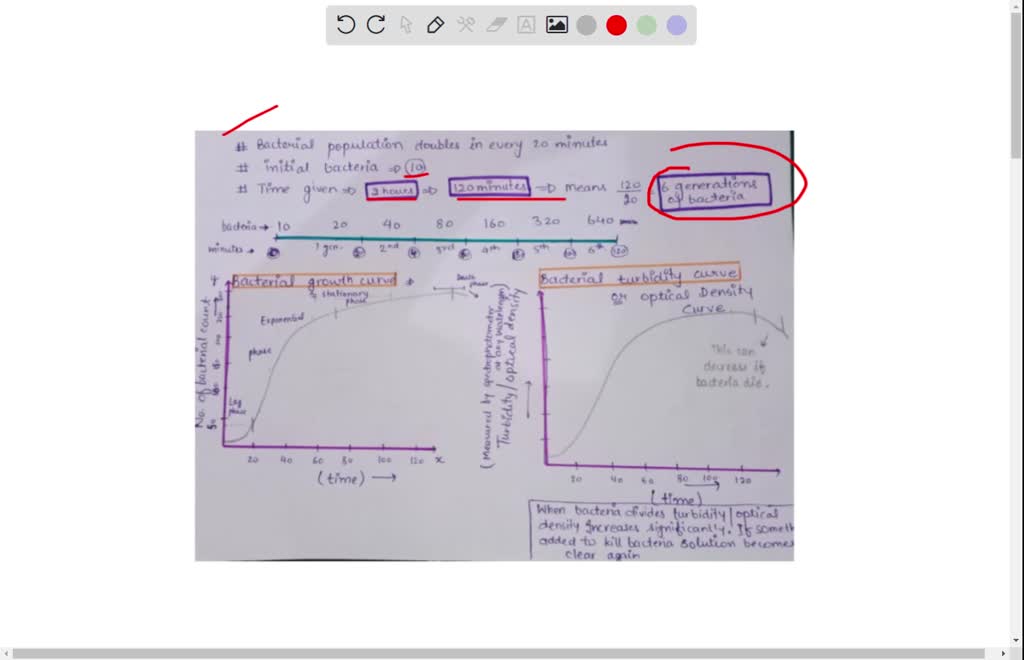 # Bacterial population doubles in every 20 minutes
# initial bacteria ⇒ (10)
# Time given ⇒ 2 hours ⇒ 120 minutes ⇒ means 120/20 = 6 generations of bacteria
bacteria → 10 20 40 80 160 320 640
minutes → 1 gen. 2nd 3rd 4th 5th 6th 120
Bacterial growth curve
stationary phase
Death phase
Exponential
phase
Lag phase
No. of bacterial count
20 40 60 80 100 120 x
(time) →
Bacterial turbidity curve
or optical Density
curve
This can
decrease if
bacteria die.
(Measured by spectrophotometer
at any wavelength)
Turbidity/optical density
20 40 60 80 100 120
(time)
When bacteria divides turbidity/optical
density increases significantly. If someth
added to kill bacteria solution becomes
clear again